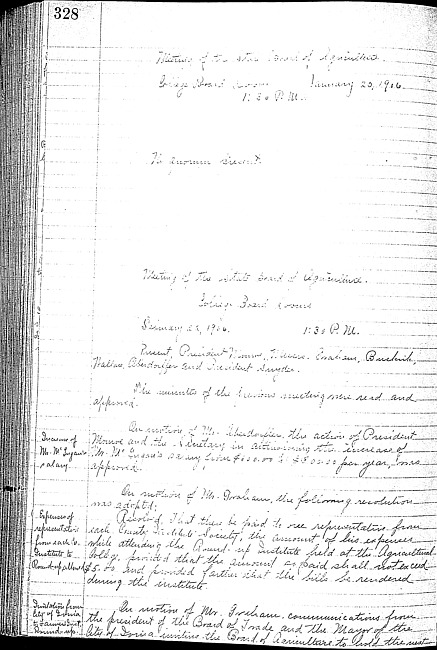 328
Meeting of the State Board of Agriculture.
College Board Rooms January 20, 1906.
1:30 P.M.
No quorum Present.
Meeting of the State Board of Agriculture.
College Board Rooms
1906. 1:30 P.M.
Present, President Monroe, Messrs. Graham, Buskirk,
Wallace, Aberdorffer and President Snyder.
The minutes of the previous meeting were read and
approved.
Increase of
Mr. Mc
salary.
On motion of Mr. the action of President
Monroe and the Secretary in the increase of
Mr. Mc salary from to $500.00 per year, was
approved.
On motion of Mr. Graham, the following resolution
was adopted:
Expenses of
representative
from each Co.
Institute to
Round-up allowed
Resolved, That there be paid to one representative from
each County Institute Society, the amount of his expenses
while attending the Round-up Institute held at the Agricultural
College, provided that the amount so paid shall not exceed
$5.00 and provided further that the bills be rendered
during the institute.
Invitation from
City of Ionia
to Farmers Inst.
Round-up.
On motion of Mr. Graham, communications from
the president of the Board of Trade and the Mayor of the
City of Ionia inviting the Board of Agriculture to hold the next